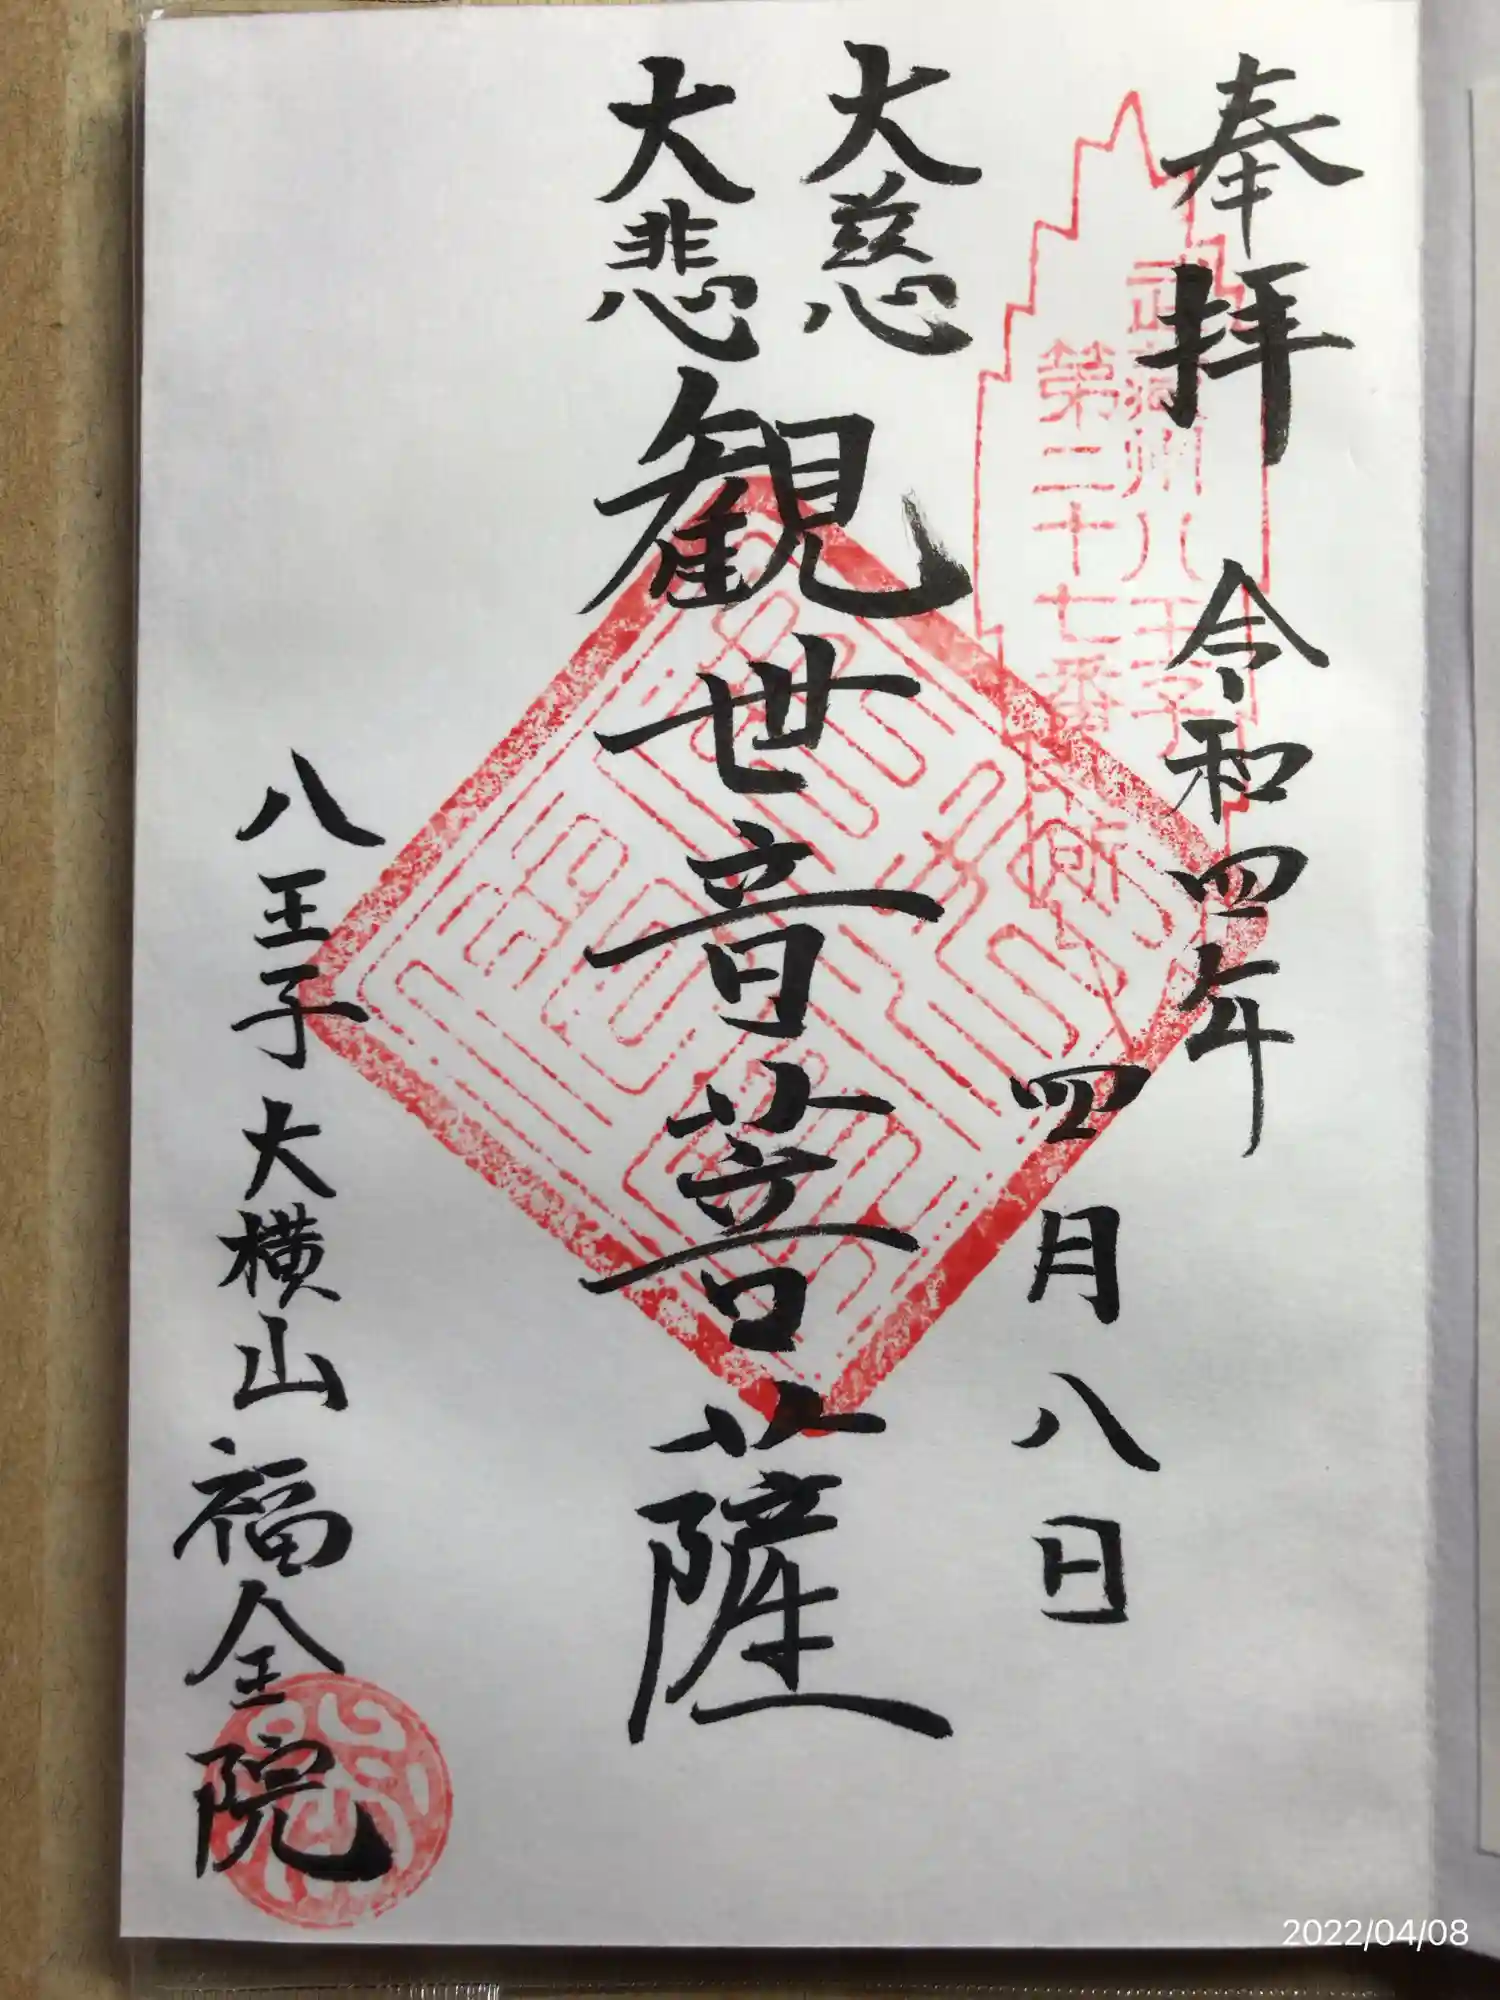 奉拝 令和四年
四月八日
武蔵州八王子
第二十七番札所
大慈
大悲
観世音菩薩
八王子大横山福全院
2022/04/08